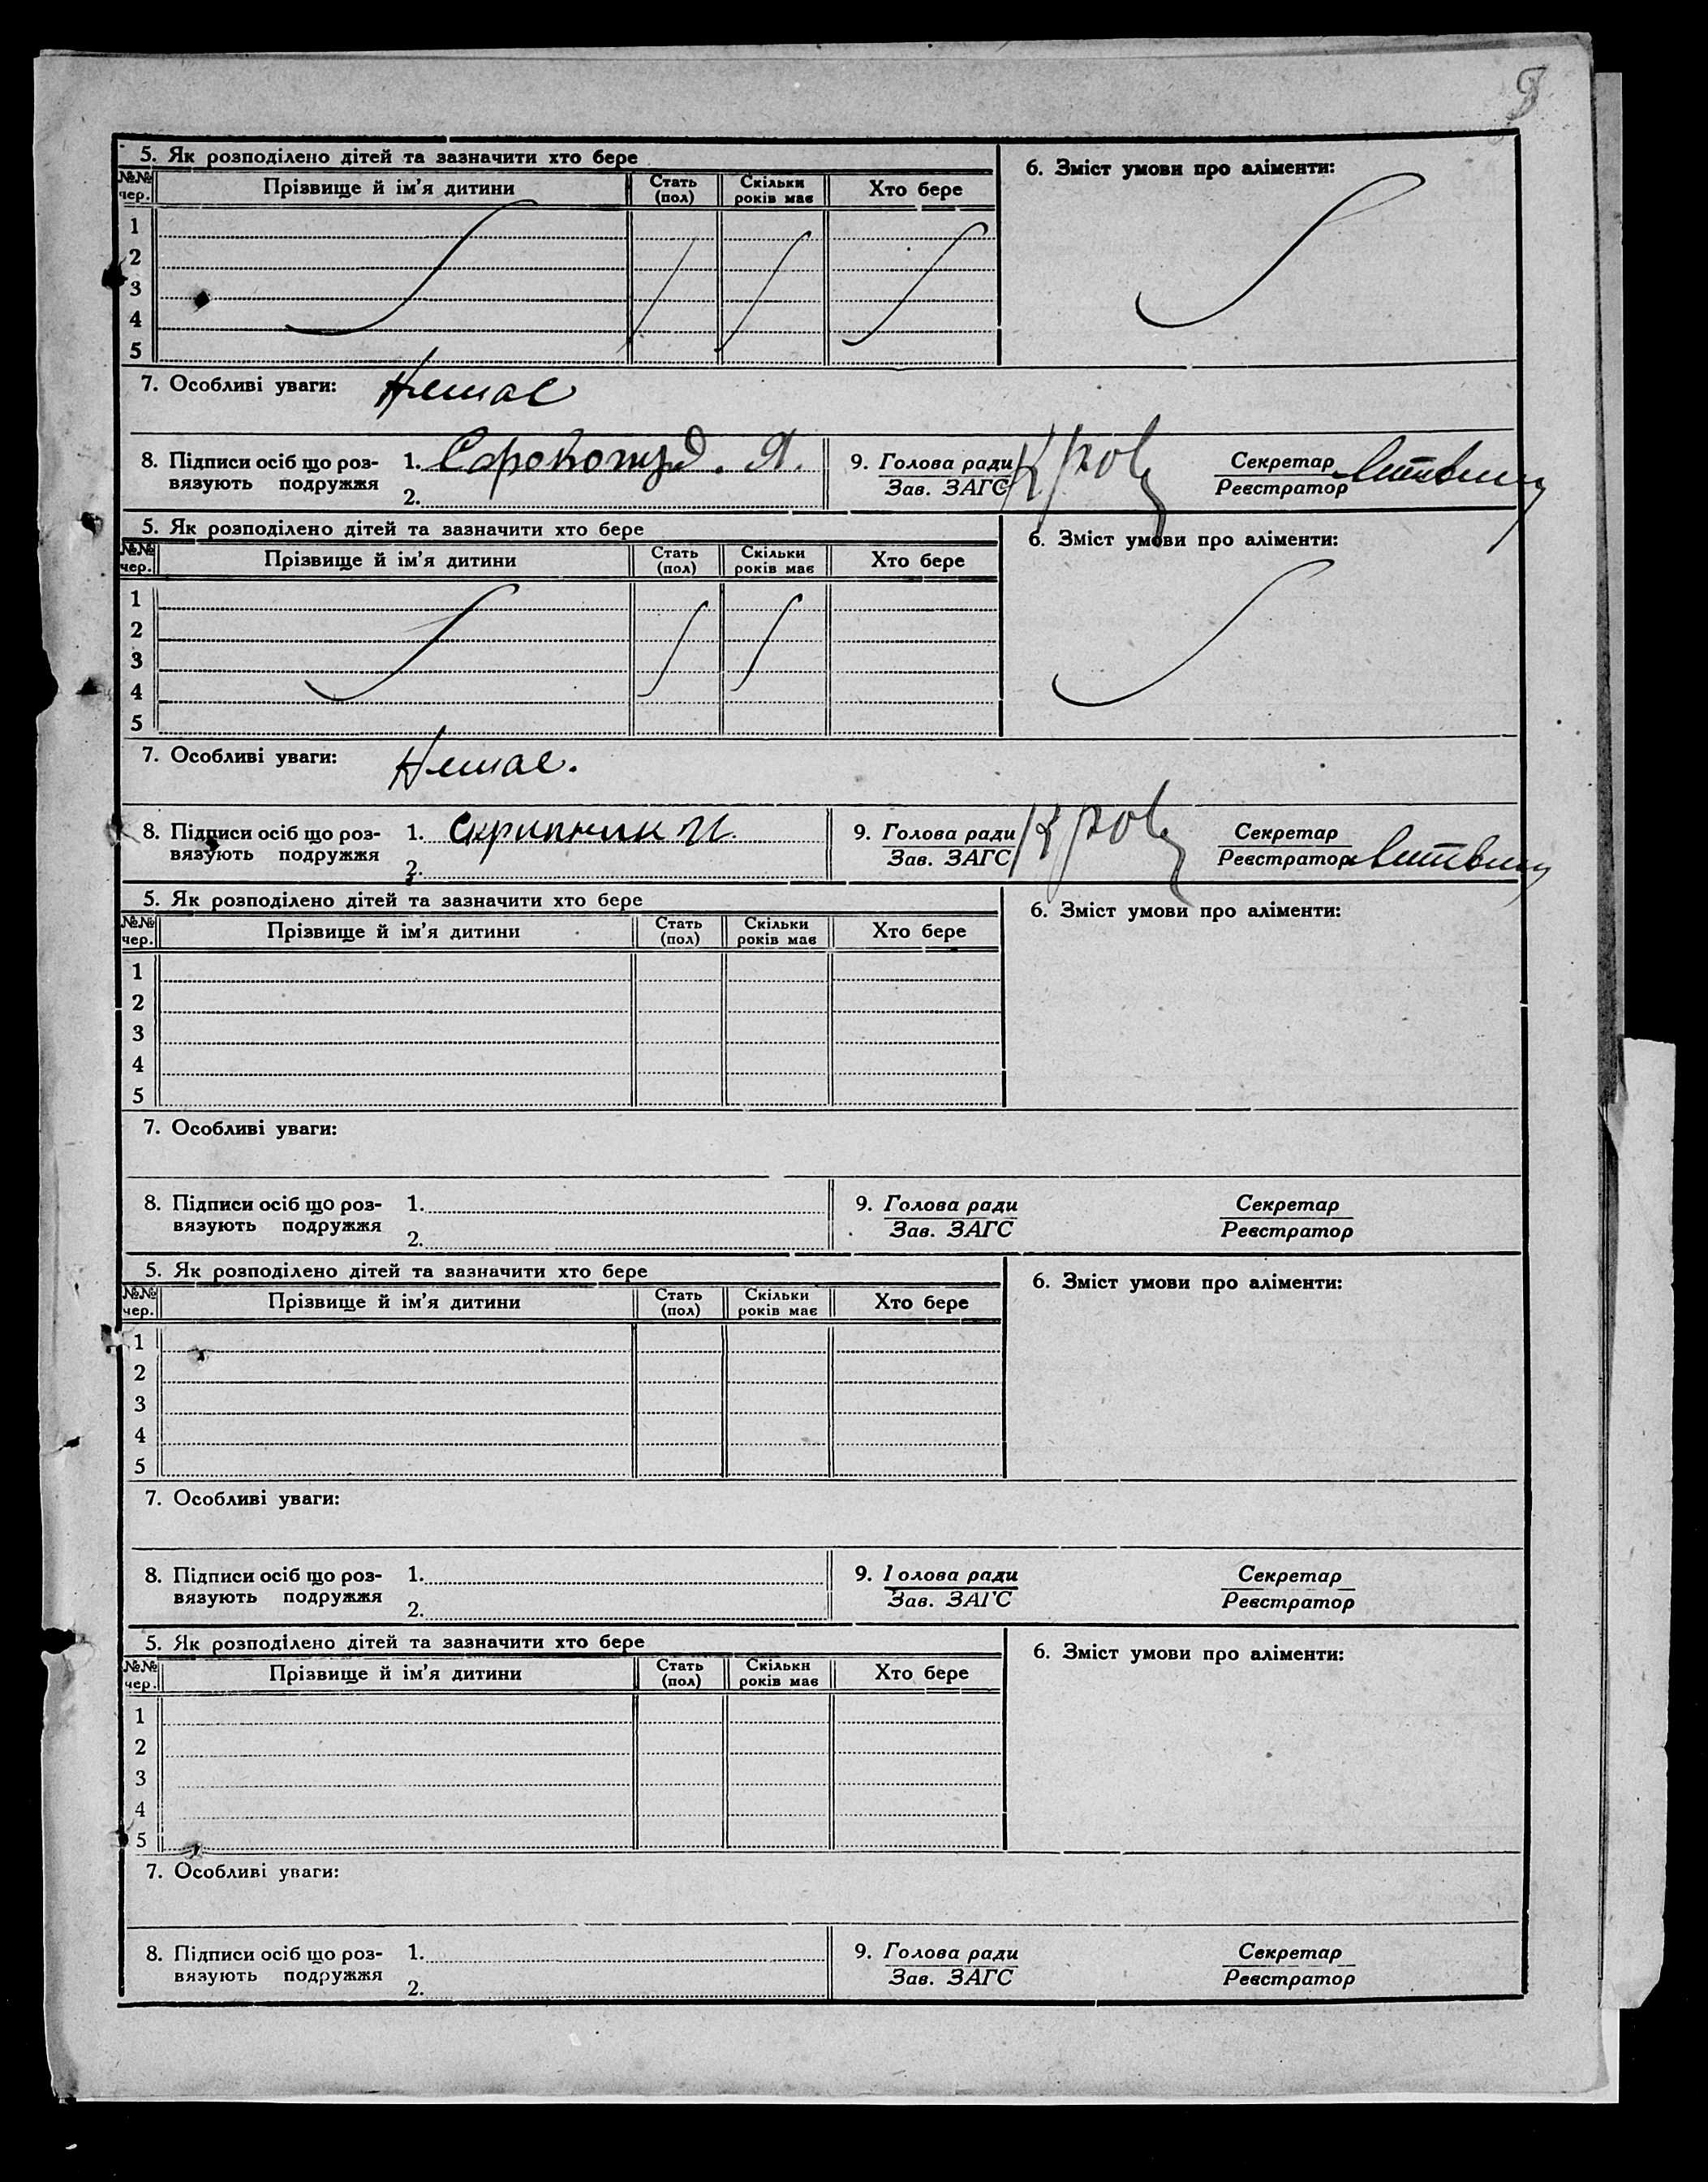 5. Як розподілено дітей та зазначити хто бере
6. Зміст умови про аліменти:
№№ чер. Прізвище й ім'я дитини Стать (пол) Скільки років має Хто бере
1
2
3
4
5
7. Особливі уваги: Немає
8. Підписи осіб що роз-
вязують подружжя
1. Сорокотуд. Я.
2.
9. Голова ради
Зав. ЗАГС
Секретар
Реєстратор
5. Як розподілено дітей та зазначити хто бере
6. Зміст умови про аліменти:
№№ чер. Прізвище й ім'я дитини Стать (пол) Скільки років має Хто бере
1
2
3
4
5
7. Особливі уваги: Немає.
8. Підписи осіб що роз-
вязують подружжя
1. Скрипник И.
2.
9. Голова ради
Зав. ЗАГС
Секретар
Реєстратор
5. Як розподілено дітей та зазначити хто бере
6. Зміст умови про аліменти:
№№ чер. Прізвище й ім'я дитини Стать (пол) Скільки років має Хто бере
1
2
3
4
5
7. Особливі уваги:
8. Підписи осіб що роз-
вязують подружжя
1.
2.
9. Голова ради
Зав. ЗАГС
Секретар
Реєстратор
5. Як розподілено дітей та зазначити хто бере
6. Зміст умови про аліменти:
№№ чер. Прізвище й ім'я дитини Стать (пол) Скільки років має Хто бере
1
2
3
4
5
7. Особливі уваги:
8. Підписи осіб що роз-
вязують подружжя
1.
2.
9. Голова ради
Зав. ЗАГС
Секретар
Реєстратор
5. Як розподілено дітей та зазначити хто бере
6. Зміст умови про аліменти:
№№ чер. Прізвище й ім'я дитини Стать (пол) Скільки років має Хто бере
1
2
3
4
5
7. Особливі уваги:
8. Підписи осіб що роз-
вязують подружжя
1.
2.
9. Голова ради
Зав. ЗАГС
Секретар
Реєстратор